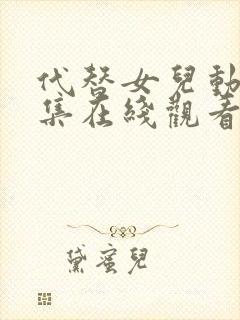 代替女兒動
集在綫觀看
黛蜜兒